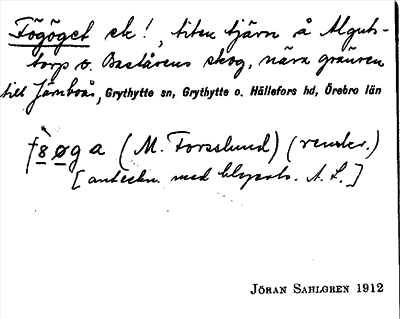 Fögöget ek!, liten tjärn å Alguts-
torp o. Baståsens skog, nära gränsen
till Järnboås, Grythytte sn, Grythytte o. Hällefors hd, Örebro län
f8øga (M. Forsslund) (renskr.)
[anteckn. med blyerts. A. L.]
JÖRAN SAHLGREN 1912